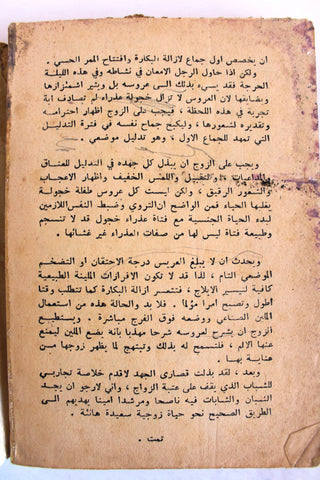 ان يخصص اول جماع لازالة البكارة وافتتاح الممر الجنسي .
ولكن اذا حاول الرجل الامعان في نشاطه وفي هذه الليلة
الحرجة فقد يسيء بذلك الى عروسه بل ويثير اشمئزازها
ويضايقها لان العروس لا تزال خجولة عذراء لم تصادف اية
تجربة في هذه اللحظة ، ويجب على الزوج ان يظهر احترامه
وتقديره لشعورها ، وليكبح جماح نفسه في فترة التدليل
التي تمهد للجماع الاول ، وهو تدليل موضعي .
ويجب على الزوج ان يبذل كل جهده في التدليل للعناق
والمداعبات ، والتقبيل واللمس الخفيف واظهار الاعجاب
والشعور الرقيق ، ولكن ليست كل عروس طفلة خجولة
يغلبها الحياء فمن الواضح ان التروي وضبط النفس اللازمين
لبدء الحياة الجنسية مع فتاة عذراء خجول قد لا تنسجم
وطبيعة فتاة ليس لها من صفات العذراء غير غشائها .
ويحدث ان لا يبلغ العريس درجة الاحتقان او التضخم
الموضعي التام ، لذا قد لا تكون الافرازات الملينة الطبيعية
كافية ليسير الايلاج ، فتتعسر ازالة البكارة كما تتطلب وقتا
اطول وتصبح امرا مؤلما . فلا بد والحالة هذه من استعمال
الملين الصناعي ووضعه فوق الفرج مباشرة . ويستطيع
الزوج ان يشرح لعروسه شرحا مهذبا بانه يضع الملين ليمنع
عنها الالم ، فلتسمح له بذلك وتبتهج لما يظهر زوجها من
عناية بها .
وبعد ، لقد بذلت قصارى الجهد لاقدم خلاصة تجاربي
للشباب الذي يقف على عتبة الزواج ، واني لارجو ان يجد
الشبان والشابات فيه ناصحا ومرشدا امينا يهديهم الى
الطريق الصحيح نحو حياة زوجية سعيدة هانئة .
تمت .